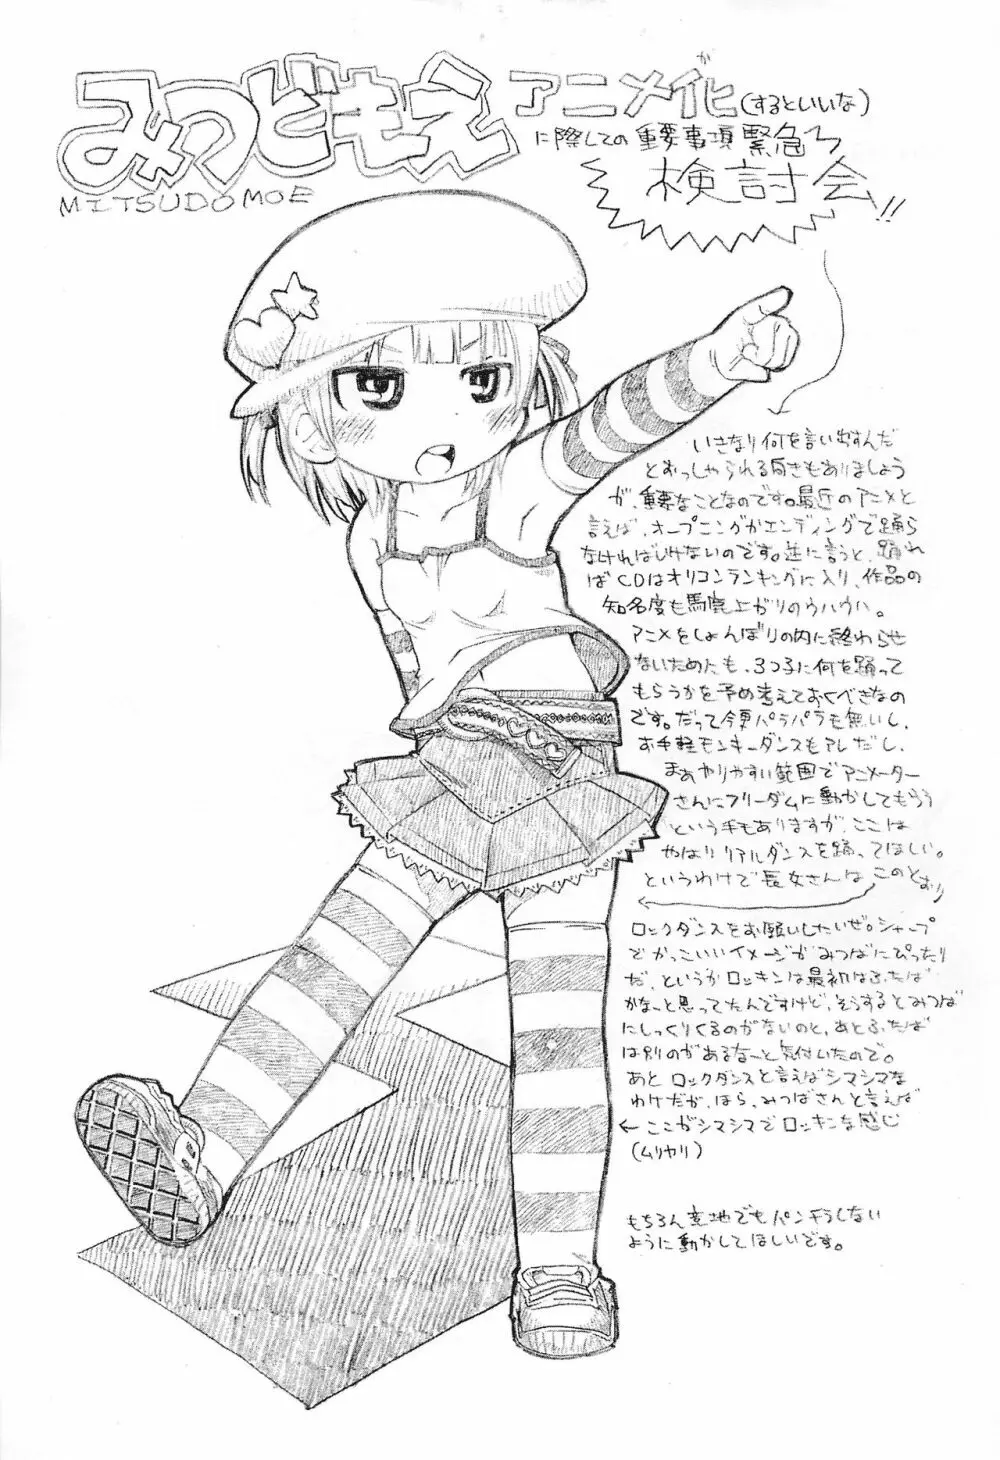 みつどもえ アニメ化(するといいな)
が
に際しての重要事項緊急
MITSUDOMOE
検討会!!
いきなり何を言い出すんだ
とおっしゃられる向きもありましょう
が、重要なことなのです。最近のアニメと
言えば、オープニングかエンディングで踊ら
なければいけないのです。逆に言うと、踊れ
ばCDはオリコンランキングに入り、作品の
知名度も馬鹿上がりのウハウハ。
アニメをしょんぼりの内に終わらせ
ないためにも、3つ子に何を踊って
もらうかを予め考えておくべきなの
です。だって今更パラパラも無いし、
お手軽モンキーダンスもアレだし、
まぁやりやすい範囲でアニメーター
さんにフリーダムに動かしてもらう
という手もありますが、ここは
やはりリアルダンスを踊ってほしい。
というわけで長女さんは このとおり
ロックダンスをお願いしたいぜ。シャープ
でかっこいいイメージがみつばにぴったり
だ、というかロッキンは最初はふたば
かな〜と思ってたんですけど、そうするとみつば
にしっくりくるのがないのと、あとふたば
は別のがあるな〜と気付いたので。
あと ロックダンスと言えばシマシマな
わけだが、ほら、みつばさんと言えば
←ここがシマシマでロッキンな感じ
(ムリヤリ)
もちろん意地でもパンチラしない
ように動かしてほしいです。